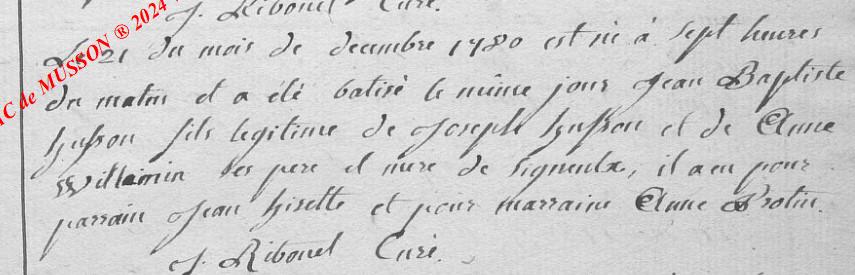 J. Ribonel Curé.
Le 21 du mois de decembre 1780 est né à sept heures
du matin et a été batisé le même jour Jean Baptiste
husson fils legitime de Joseph husson et de Anne
Willemin ses pere et mere de signeulx, il a eu pour
parrain Jean Gisette et pour marraine Anne Protin.
J. Ribonel Curé.
AC de MUSSON ® 2024